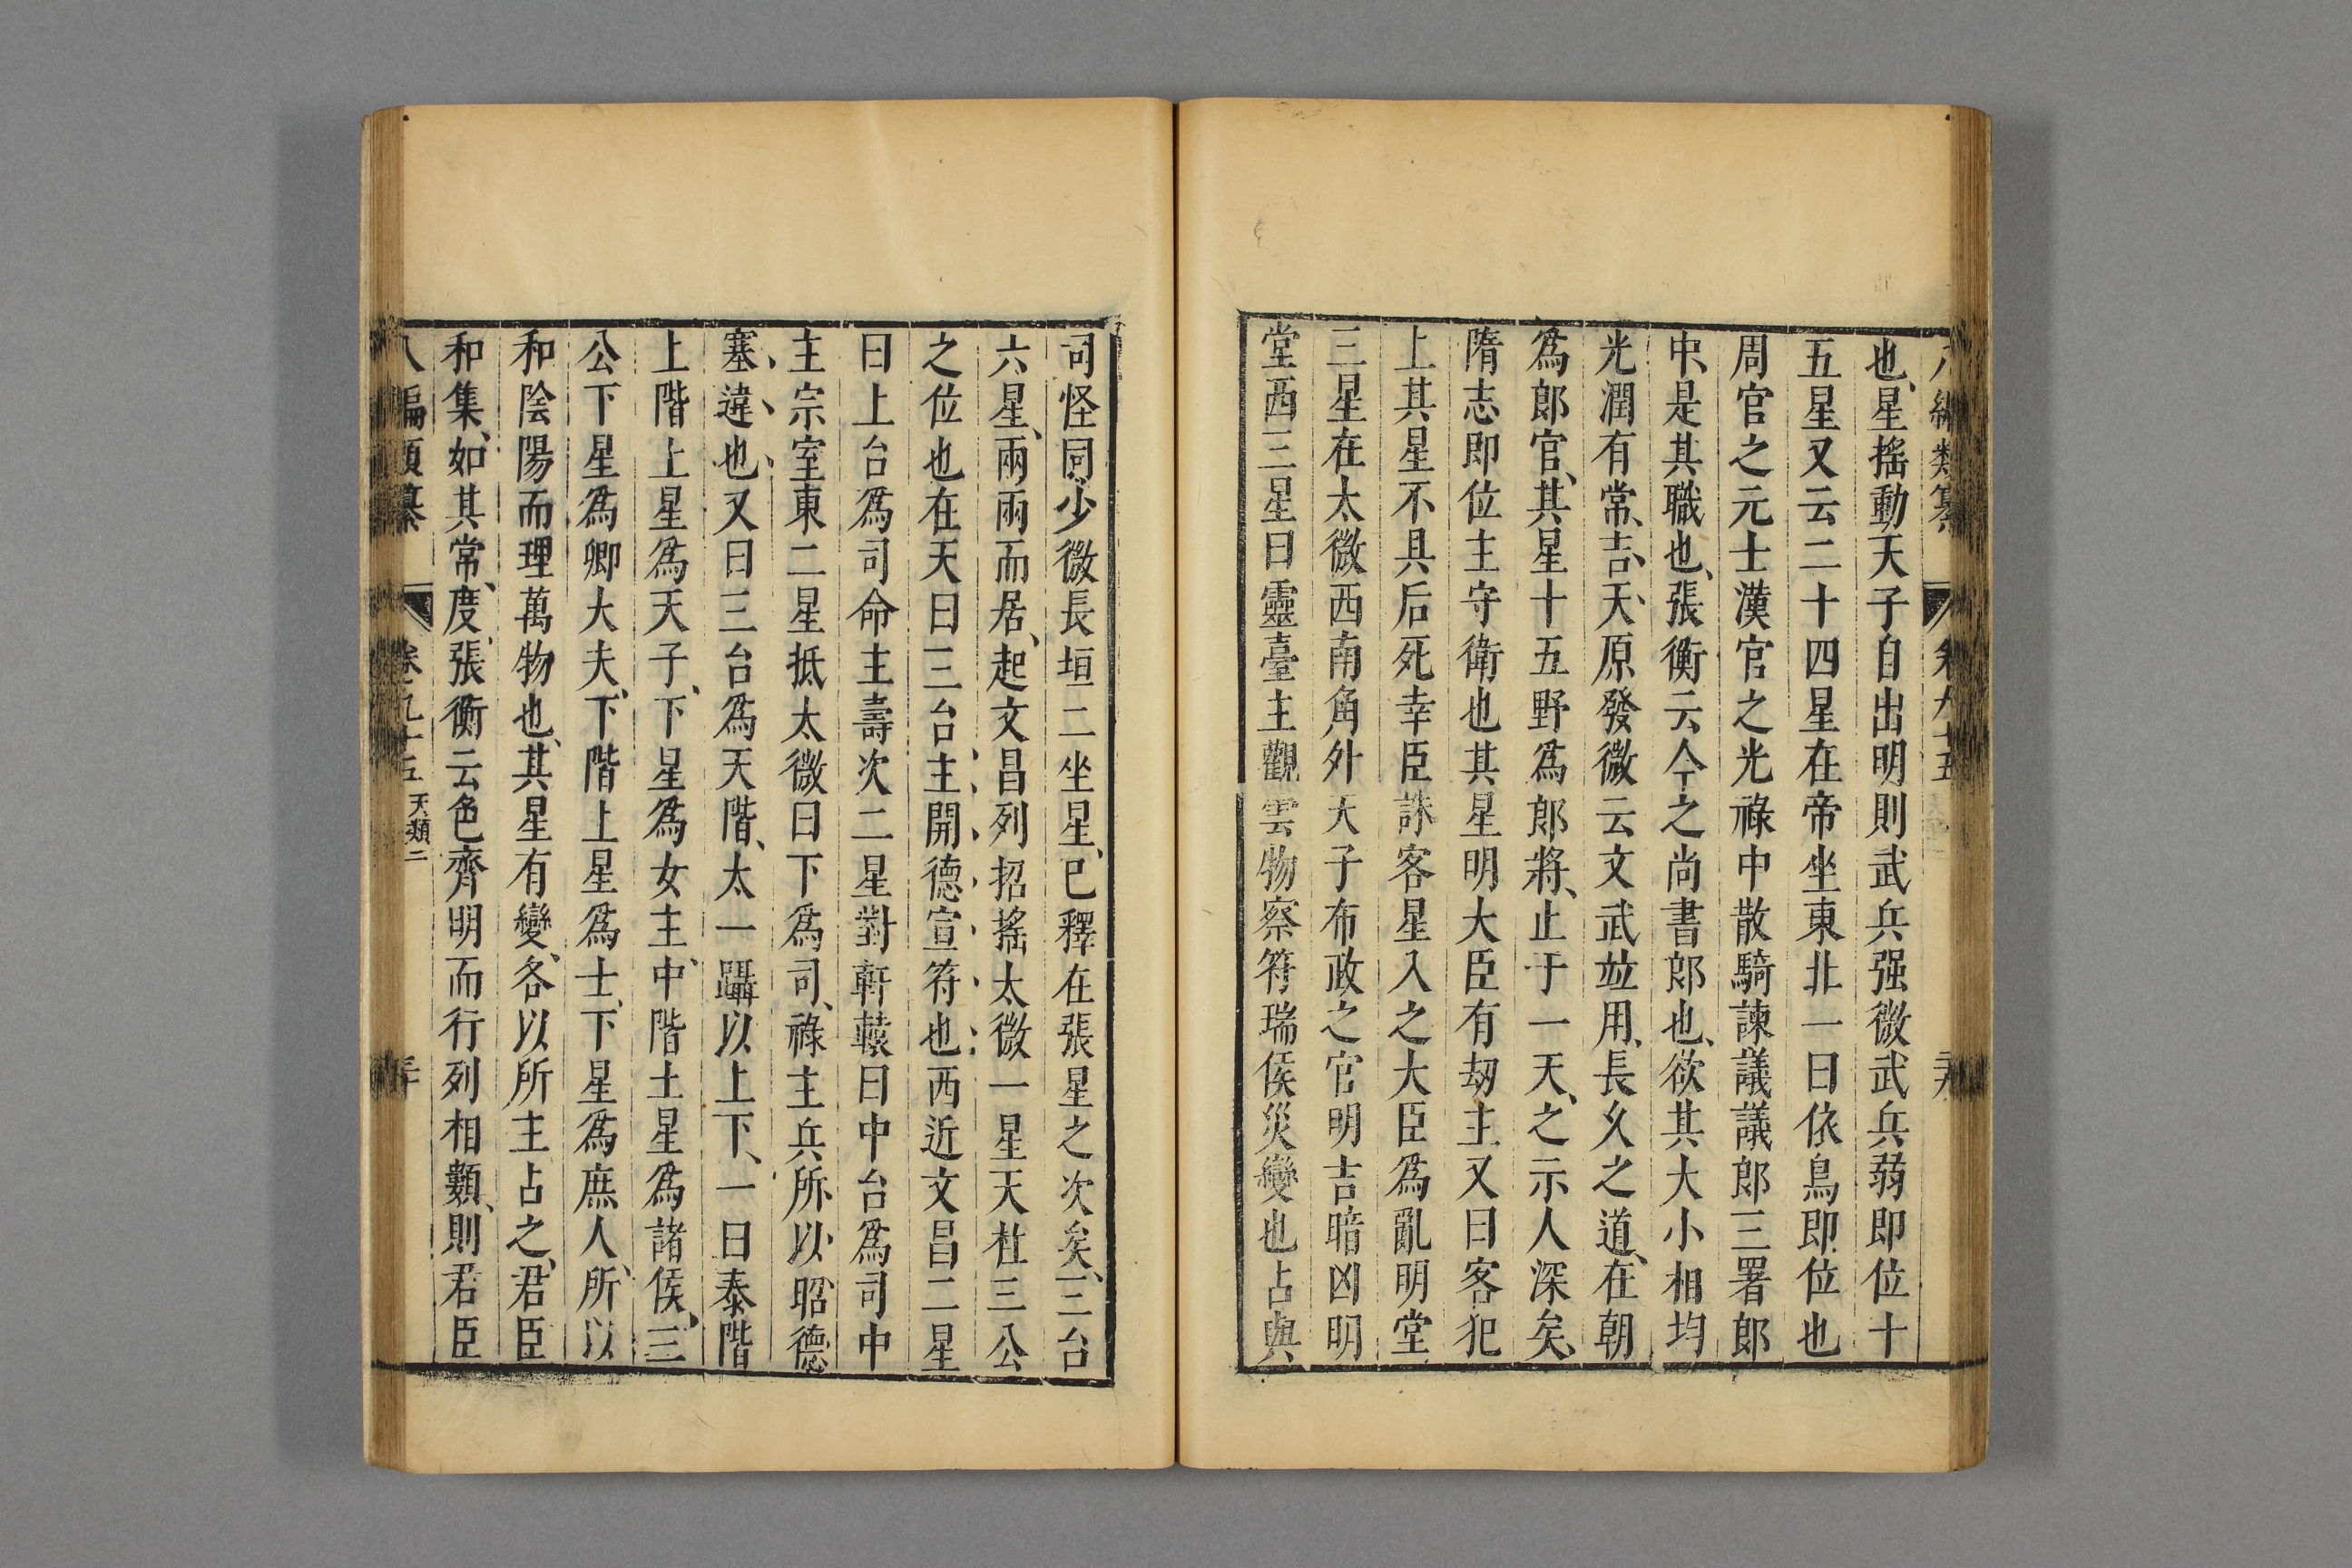 八編類纂 卷九十五 二十九
也、星搖動天子自出明則武兵强微武兵弱即位十
五星又云二十四星在帝坐東北一曰依烏即位也
周官之元士漢官之光祿中散騎諫議議郎三署郎
中、是其職也、張衡云今之尚書郎也、欲其大小相均
光潤有常、吉、天原發微云文武竝用、長久之道、在朝
爲郎官、其星十五野爲郎將、止于一天、之示人深矣、
隋志即位主守衛也其星明大臣有刼主又曰客犯
上其星不具后死幸臣誅客星入之大臣爲亂明堂
三星在太微西南角外天子布政之官明吉暗凶明
堂西三星曰靈臺主觀雲物察符瑞侯災變也占與
司怪同少微長垣二坐星、已釋在張星之次矣、三台
六星、兩兩而居、起文昌列招搖太微一星天柱三公
之位也在天曰三台主開德宣符也西近文昌二星
曰上台爲司命主壽次二星對軒轅曰中台爲司中
主宗室東二星抵太微曰下爲司、祿主兵所以昭德
塞違也又曰三台爲天階、太一躡以上下、一曰泰階
上階上星爲天子、下星爲女主、中階土星爲諸侯、三
公下星爲卿大夫、下階上星爲士、下星爲庶人、所以
和陰陽而理萬物也、其星有變、各以所主占之、君臣
和集、如其常、度、張衡云色齊明而行列相類、則君臣
八編類纂 卷九十五 天類二 三十